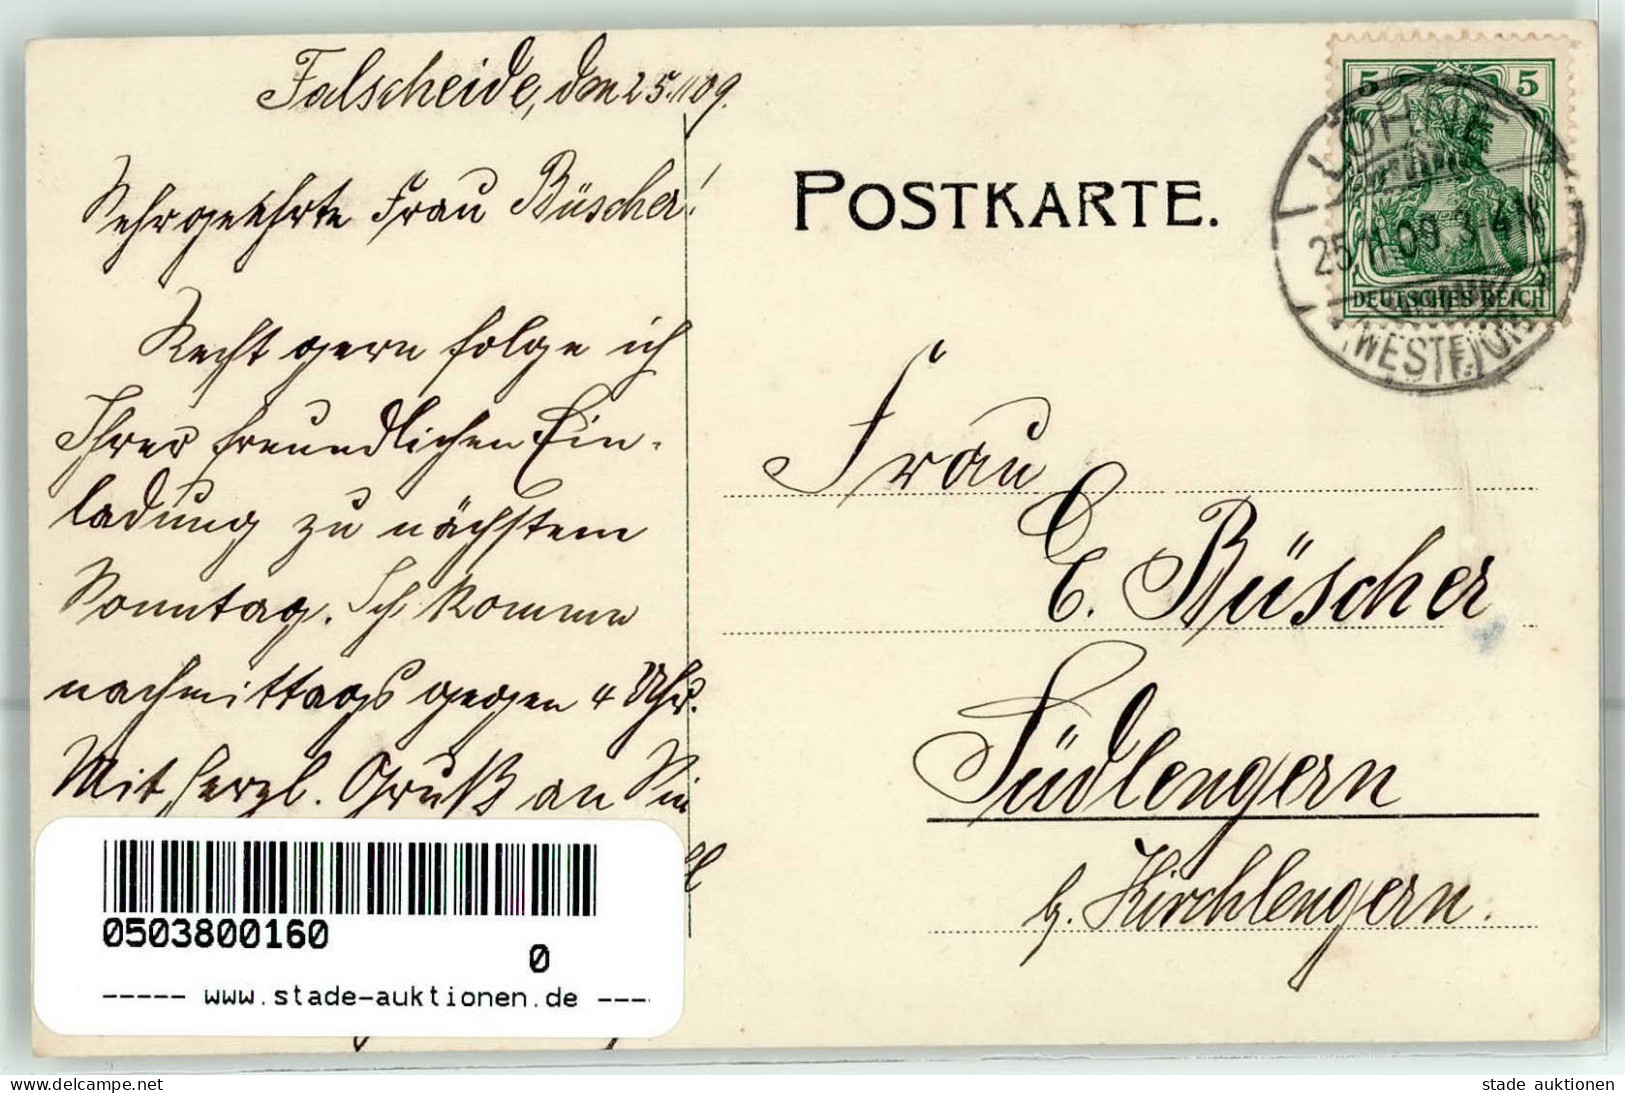 Falscheide, den 25./11 09.
Sehrgeehrte Frau Büscher!
Recht gern folge ich
Ihrer freundlichen Ein-
ladung zu nächstem
Sonntag. Ich komme
nachmittags gegen 4 Uhr.
Mit herzl. Gruß an Sie
POSTKARTE.
5 5
DEUTSCHES REICH
LÖHNE
25.11.09.3-4N
(WESTF)
Frau
E. Büscher
Südlengern
b. Kirchlengern.
0503800160
0
----- www.stade-auktionen.de ----
www.delcampe.net
stade auktionen